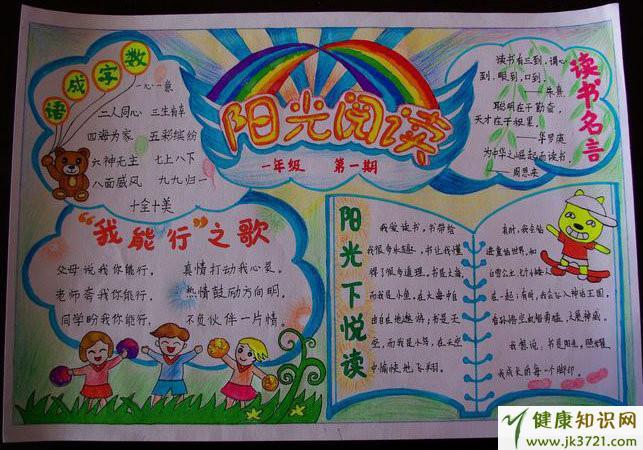 阳光阅读
一年级 第一期
数字成语
一心一意
二人同心 三生有幸
四海为家 五彩缤纷
六神无主 七上八下
八面威风 九九归一
十全十美
读书名言
读书有三到,谓心
到,眼到,口到。
——朱熹
聪明在于勤奋,
天才在于积累。
——华罗庚
为中华之崛起而读书。
——周恩来
“我能行”之歌
父母说我你能行, 真情打动我心灵。
老师夸我你能行, 热情鼓励方向明。
同学盼我你能行, 不负伙伴一片情。
阳光下悦读
我爱读书,书带给
我很多乐趣,书让我懂
得了很多道理。书是大海,
而我是小鱼,在大海中自
由自在地遨游;书是天
空,而我是小鸟,在天空
中愉快地飞翔。
有时,我会钻
进童话世界,和
白雪公主、七个小矮人
在一起;有时,我会飞入神话王国,
看孙悟空机智勇猛,大展神威。
我想说,书是阳光,照耀
我成长的每一个脚印。
健康知识网
www.jk3721.com